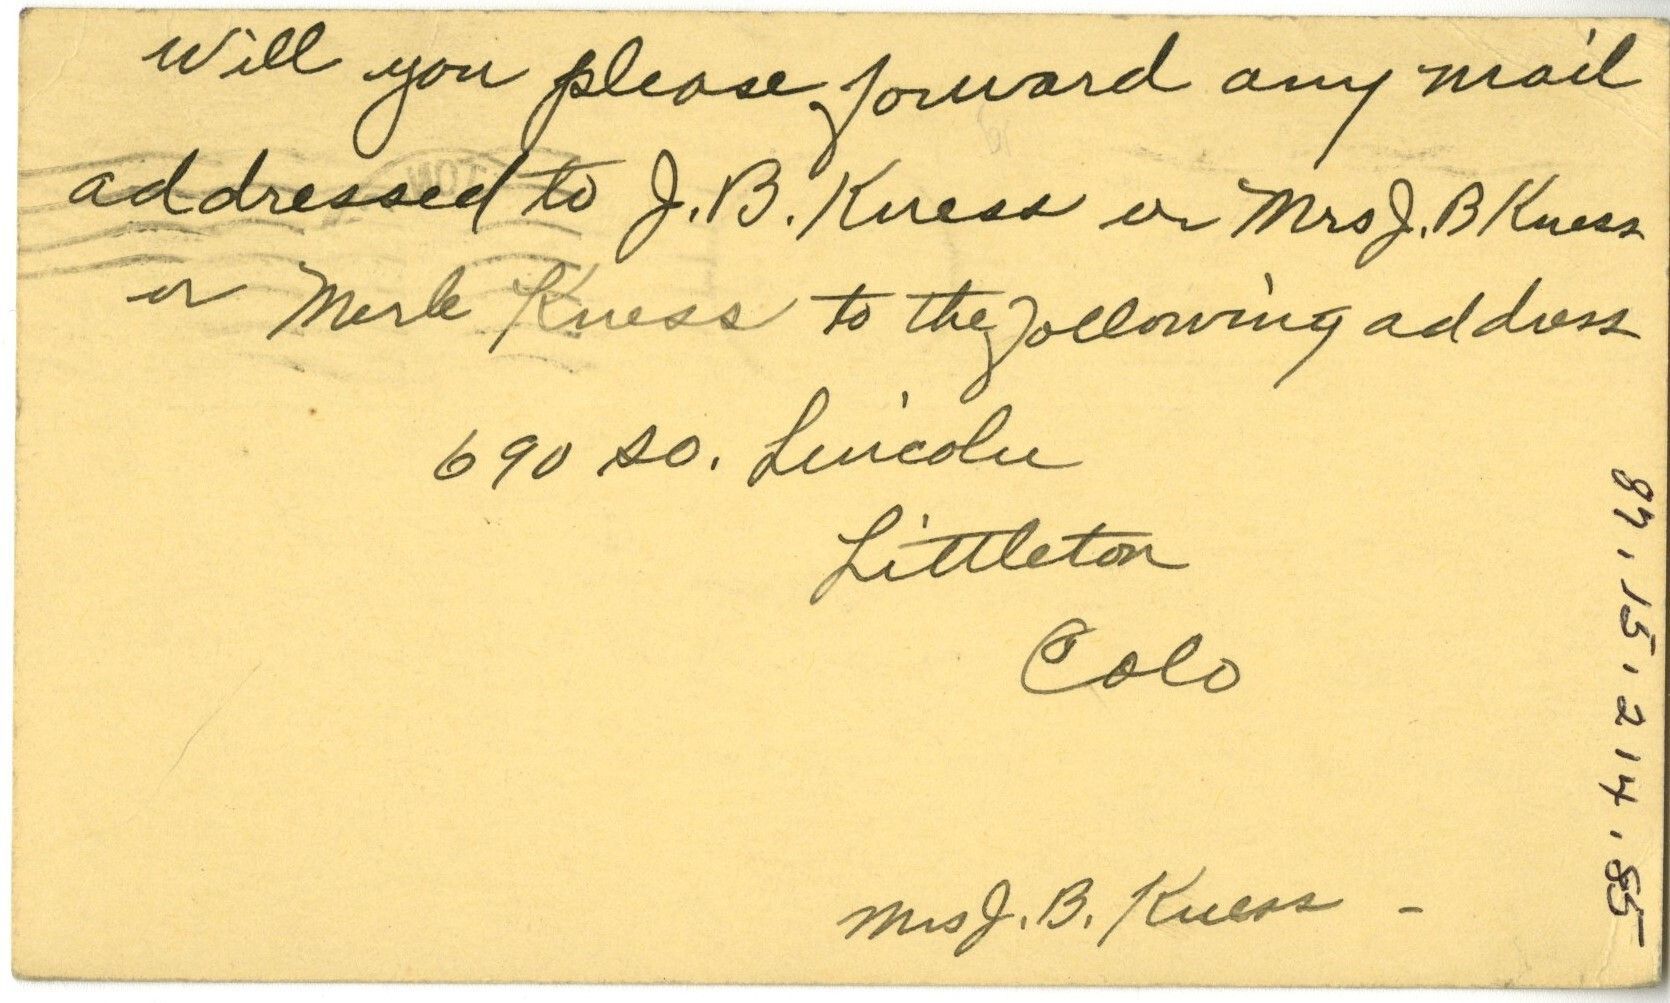 Will you please forward any mail
addressed to J. B. Kness or Mrs J. B Kness
or Merle Kness to the following address
690 so. Lincoln
Littleton
Colo
Mrs J. B. Kness -
87.15.214.85